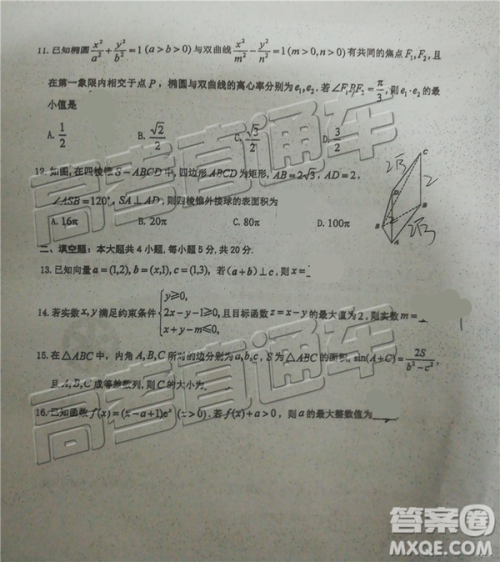 11. 已知椭圆 x²/a² + y²/b² = 1 (a > b > 0) 与双曲线 x²/m² − y²/n² = 1 (m > 0, n > 0) 有共同的焦点 F₁, F₂, 且
在第一象限内相交于点 P, 椭圆与双曲线的离心率分别为 e₁, e₂. 若 ∠F₁PF₂ = π/3, 则 e₁·e₂ 的最
小值是
A. 1/2 B. √2/2 C. √3/2 D. 3/2
12. 如图, 在四棱锥 S − ABCD 中, 四边形 ABCD 为矩形, AB = 2√3, AD = 2,
∠ASB = 120°, SA ⊥ AD, 则四棱锥外接球的表面积为
A. 16π B. 20π C. 80π D. 100π
2√3
2
2√3
二、填空题: 本大题共 4 小题, 每小题 5 分, 共 20 分.
13. 已知向量 a = (1,2), b = (x,1), c = (1,3), 若 (a + b) ⊥ c, 则 x =
14. 若实数 x, y 满足约束条件 { y ≥ 0, 2x − y − 1 ≥ 0, x + y − m ≤ 0, 且目标函数 z = x − y 的最大值为 2, 则实数 m =
15. 在 △ABC 中, 内角 A, B, C 所对的边分别为 a, b, c, S 为 △ABC 的面积, sin(A + C) = 2S/(b² − c²),
且 A, B, C 成等差数列, 则 C 的大小为
16. 已知函数 f(x) = (x − a + 1)eˣ (x > 0). 若 f(x) + a > 0, 则 a 的最大整数值为
高考直通车
高考直通车
高考直通车
答案圈
MXQE.COM